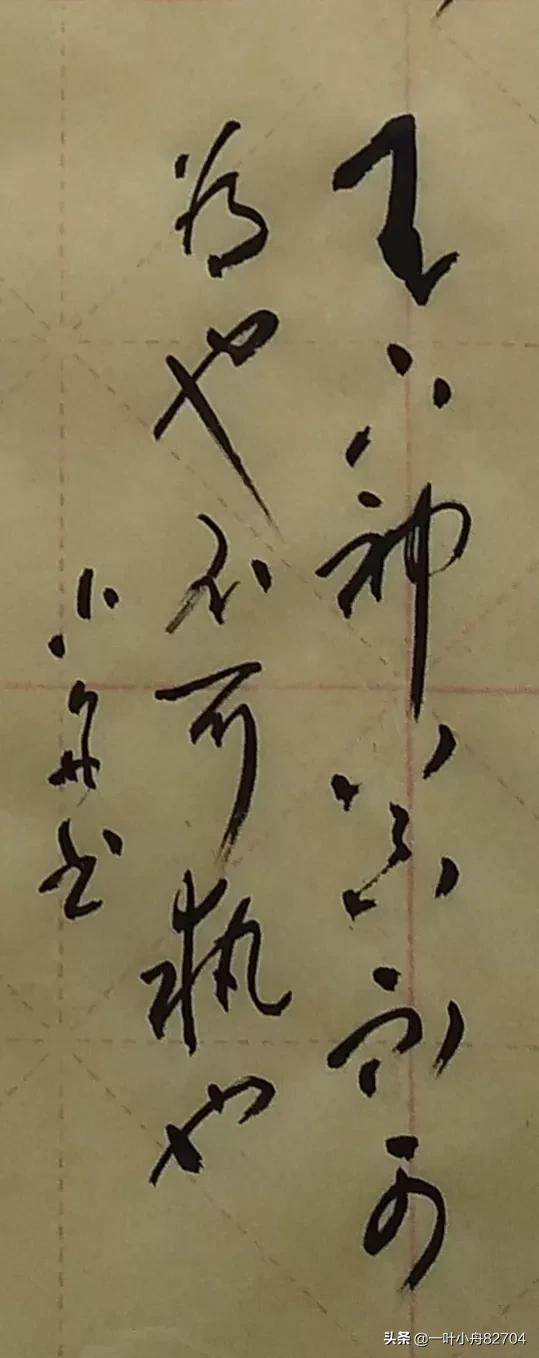 天下神器不可
为也不可執也
小舟书
头条 @一叶小舟82704